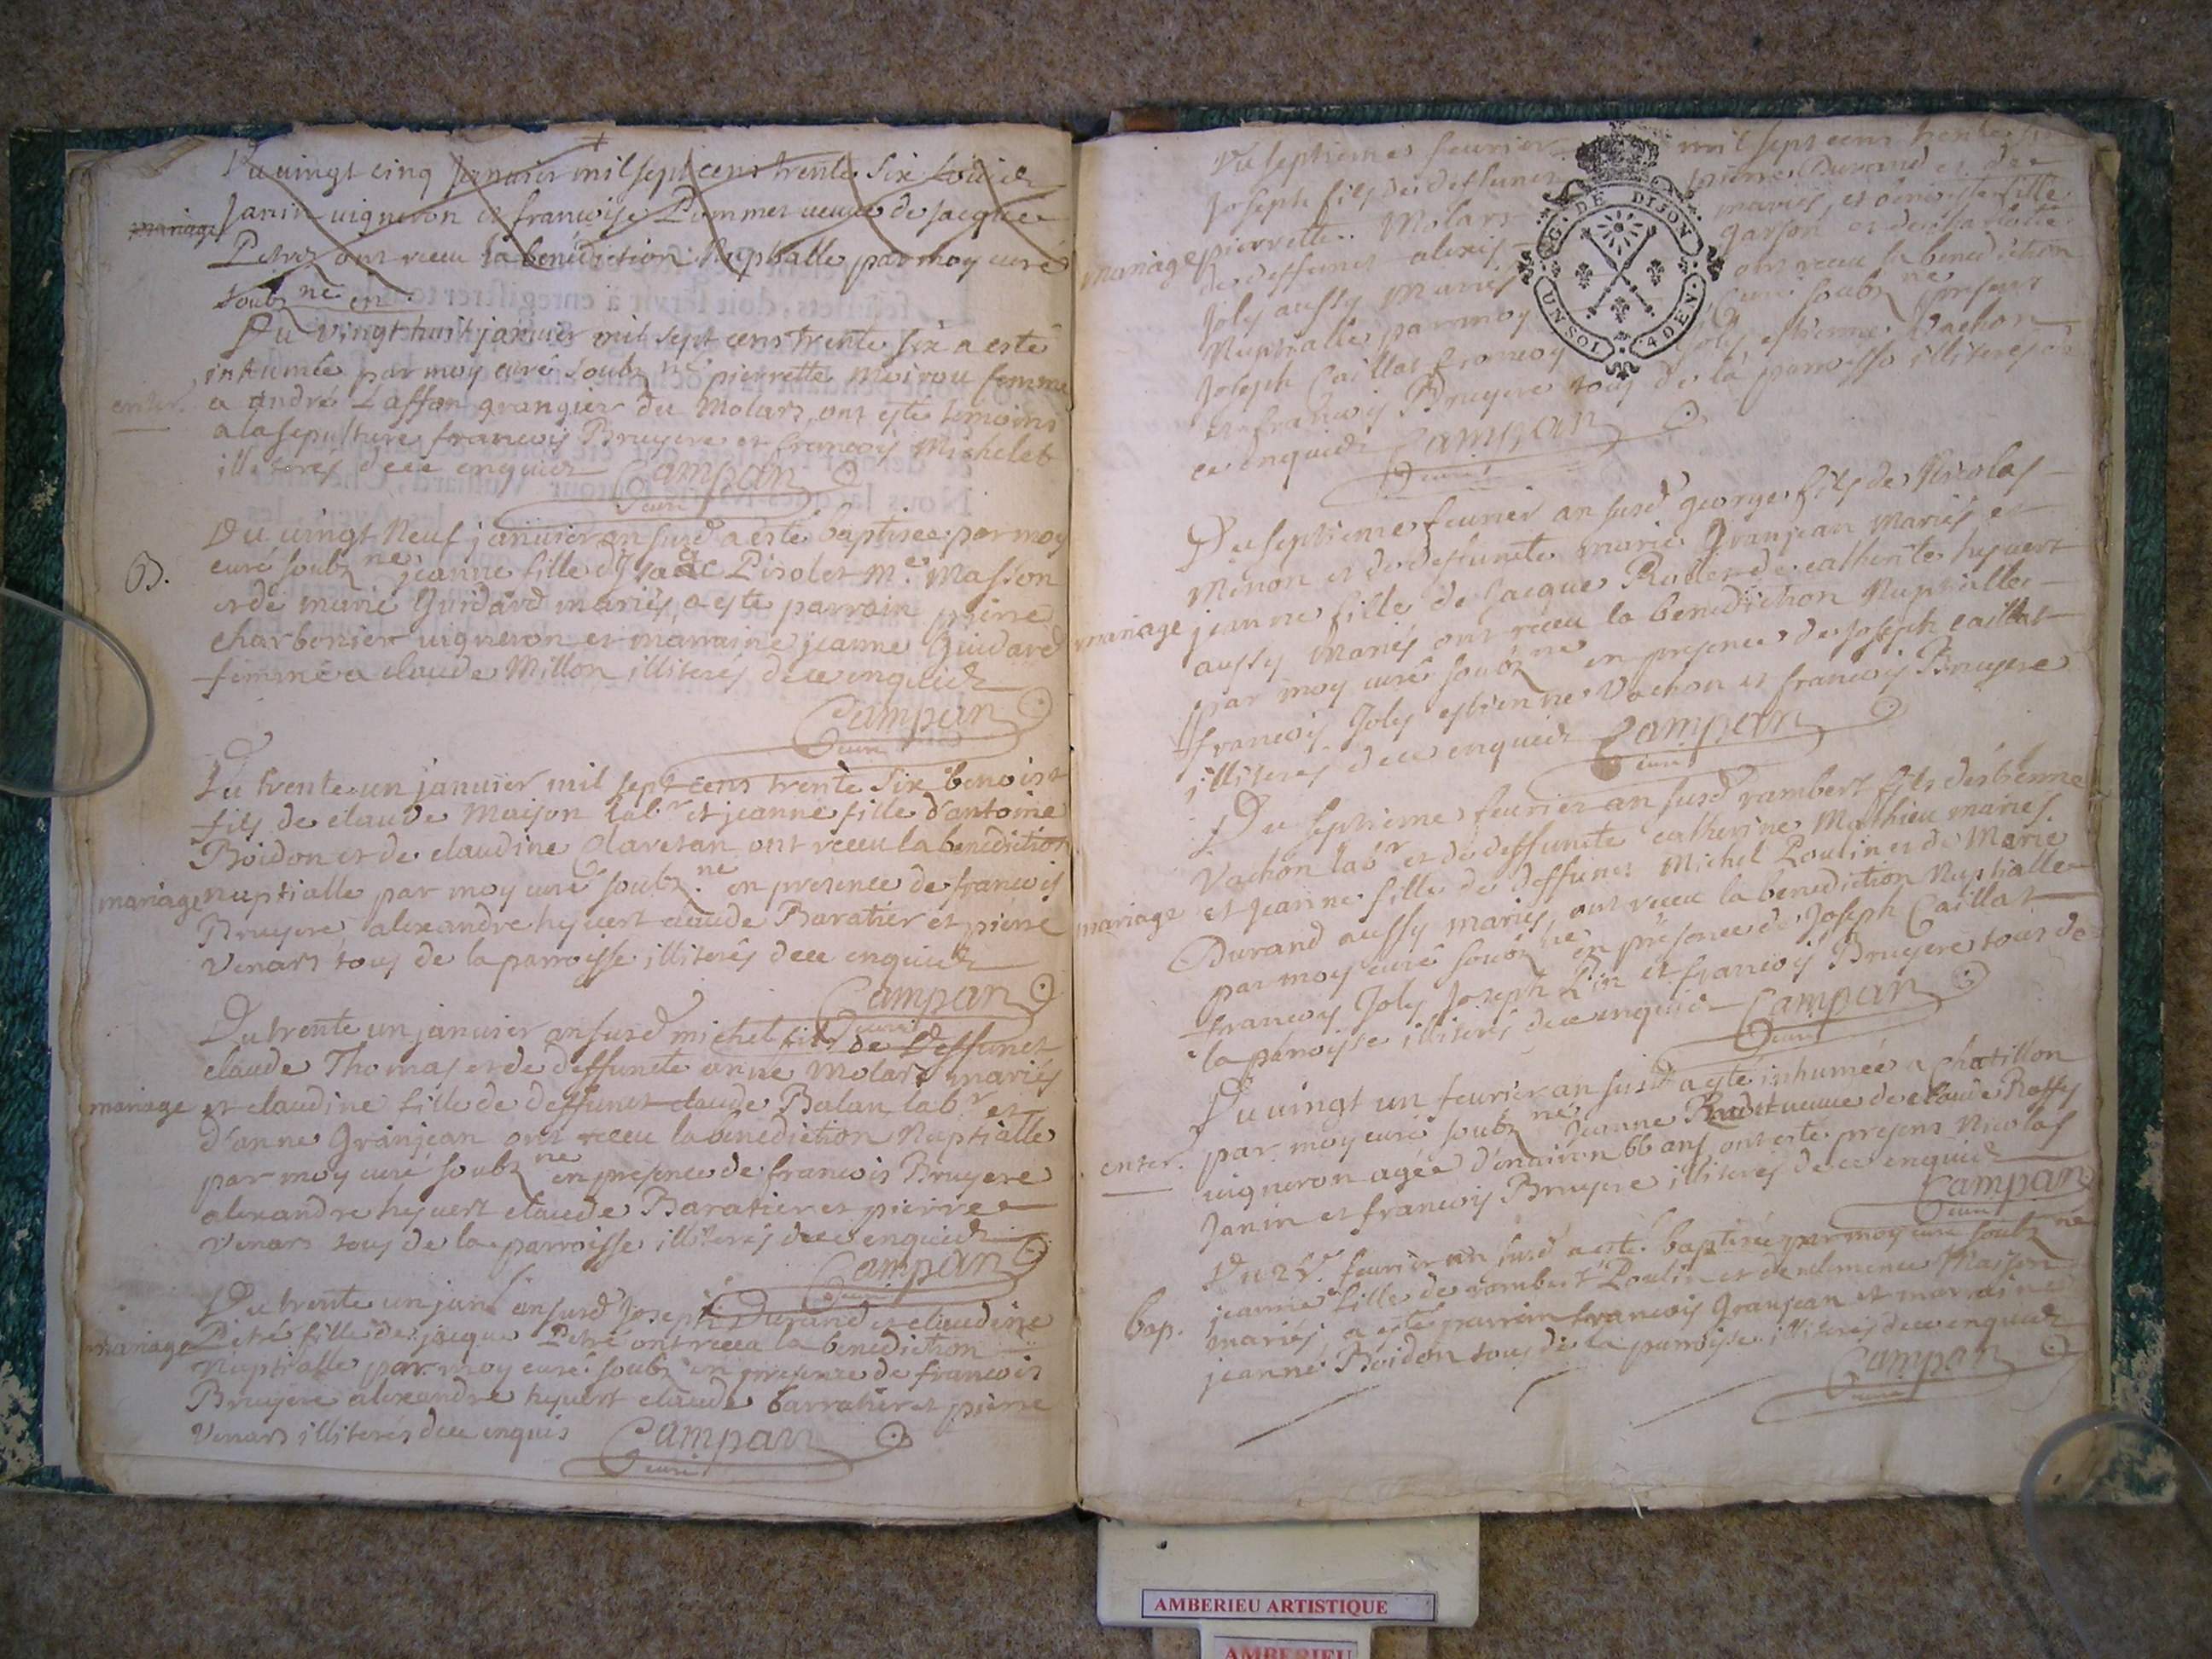 Du vingt cinq janvier mil sept cens trente six
mariage
Janin vigneron et francoise Pommet veuve de jacque
Petré ont receu la benediction Nuptialle par moy curé
soubz ne en
Du vingt huit janvier mil sept cens trente six a esté
inhumée par moy curé soubz ne pierrette Moirou femme
enter.
a andré Laffon granger du Molars, ont esté temoins
a la sepulture francois Bruyere et francois Michelet
illiterés de ce enquiets Campan
curé
Du vingt Neuf janvier an susd a esté baptisee par moy
B.
curé soubz ne jeanne fille d'Isaac Pirolet Me Masson
et de marie Guidard mariés, a esté parrain pierre
charbonier vigneron et marraine jeanne Guidard
femme a claude Millon illiterés de ce enquiets
Campan
curé
Du trente un janvier mil sept cens trente six benoist
fils de claude Maison labr et jeanne fille d'antoine
Boidon et de claudine Clavetan ont receu la benediction
mariage
nuptialle par moy curé soubz ne en presence de francois
Bruyere alexandre hyvert claude Baratier et pierre
Venars tous de la parroisse illiterés de ce enquiets
Campan
curé
Du trente un janvier an susd michel fils de deffunct
claude Thomas et de deffuncte anne Molars mariés
mariage
et claudine fille de deffunct claude Balan labr et
d'anne Granjean ont receu la benediction Nuptialle
par moy curé soubz ne en presence de francois Bruyere
alexandre hyvert claude Baratier et pierre
Venars tous de la parroisse illiterés de ce enquiets
Campan
curé
Du trente un janv an susd Joseph Durand et claudine
mariage
Petré fille de jacque Petré ont receu la benediction
Nuptialle par moy curé soubz en presence de francois
Bruyere alexandre hyvert claude barratier et pierre
Venars illiterés de ce enquis Campan
curé
Du septiemes fevrier mil sept cens trente six
Joseph fils de deffunct pierre Durand et de
mariage
pierrette Molars mariés, et benoiste fille
de deffunct alexis garson et de
Joly aussy Mariés ont receu la benediction
Nuptialle par moy curé soubz ne present
Joseph Caillat francois Joly estienne Vachon
et francois Bruyere tous de la parroisse illiterés
ce enquiets Campan
curé
G. DE DIJON
UNSOL 4 DEN.
Du septieme fevrier an susd george fils de Nicolas
Minon et de deffuncte marie Granjean Mariés et
mariage
jeanne fille de Jacque et de catherine hyvert
aussy Mariés ont receu la benediction Nuptialle
par moy curé soubz ne en presence de Joseph caillat
francois Joly estienne Vachon et francois Bruyere
illiterés de ce enquiets Campan
curé
Du septieme fevrier an susd rambert fils d'estienne
Vachon labr et de deffuncte catherine Mathieu mariés
mariage
et Jeanne fille de deffunct Michel Poulin et de Marie
Durand aussy mariés, ont receu la benediction Nuptialle
par moy curé soubz ne en presence de Joseph Caillat
francois Joly Joseph Lin et francois Bruyere tous de
la parroisse illiterés de ce enquiets Campan
curé
Du vingt un fevrier an susd a esté inhumée a chatillon
par moy curé soubz ne Jeanne veuve de claude Roffy
enter.
vigneron agée d'environ 66 ans, ont esté presens Nicolas
Janin et francois Bruyere illiterés de ce enquiets
Campan
curé
fevrier an susd a esté baptisée par moy curé soubz ne
bap.
jeanne fille de rambert Poulin et de clemence Maison
mariés, a esté parrain francois Granjean et marraine
jeanne Boidon tous de la parroisse illiterés de ce enquiets
Campan
curé
AMBERIEU ARTISTIQUE
AMBERIEU